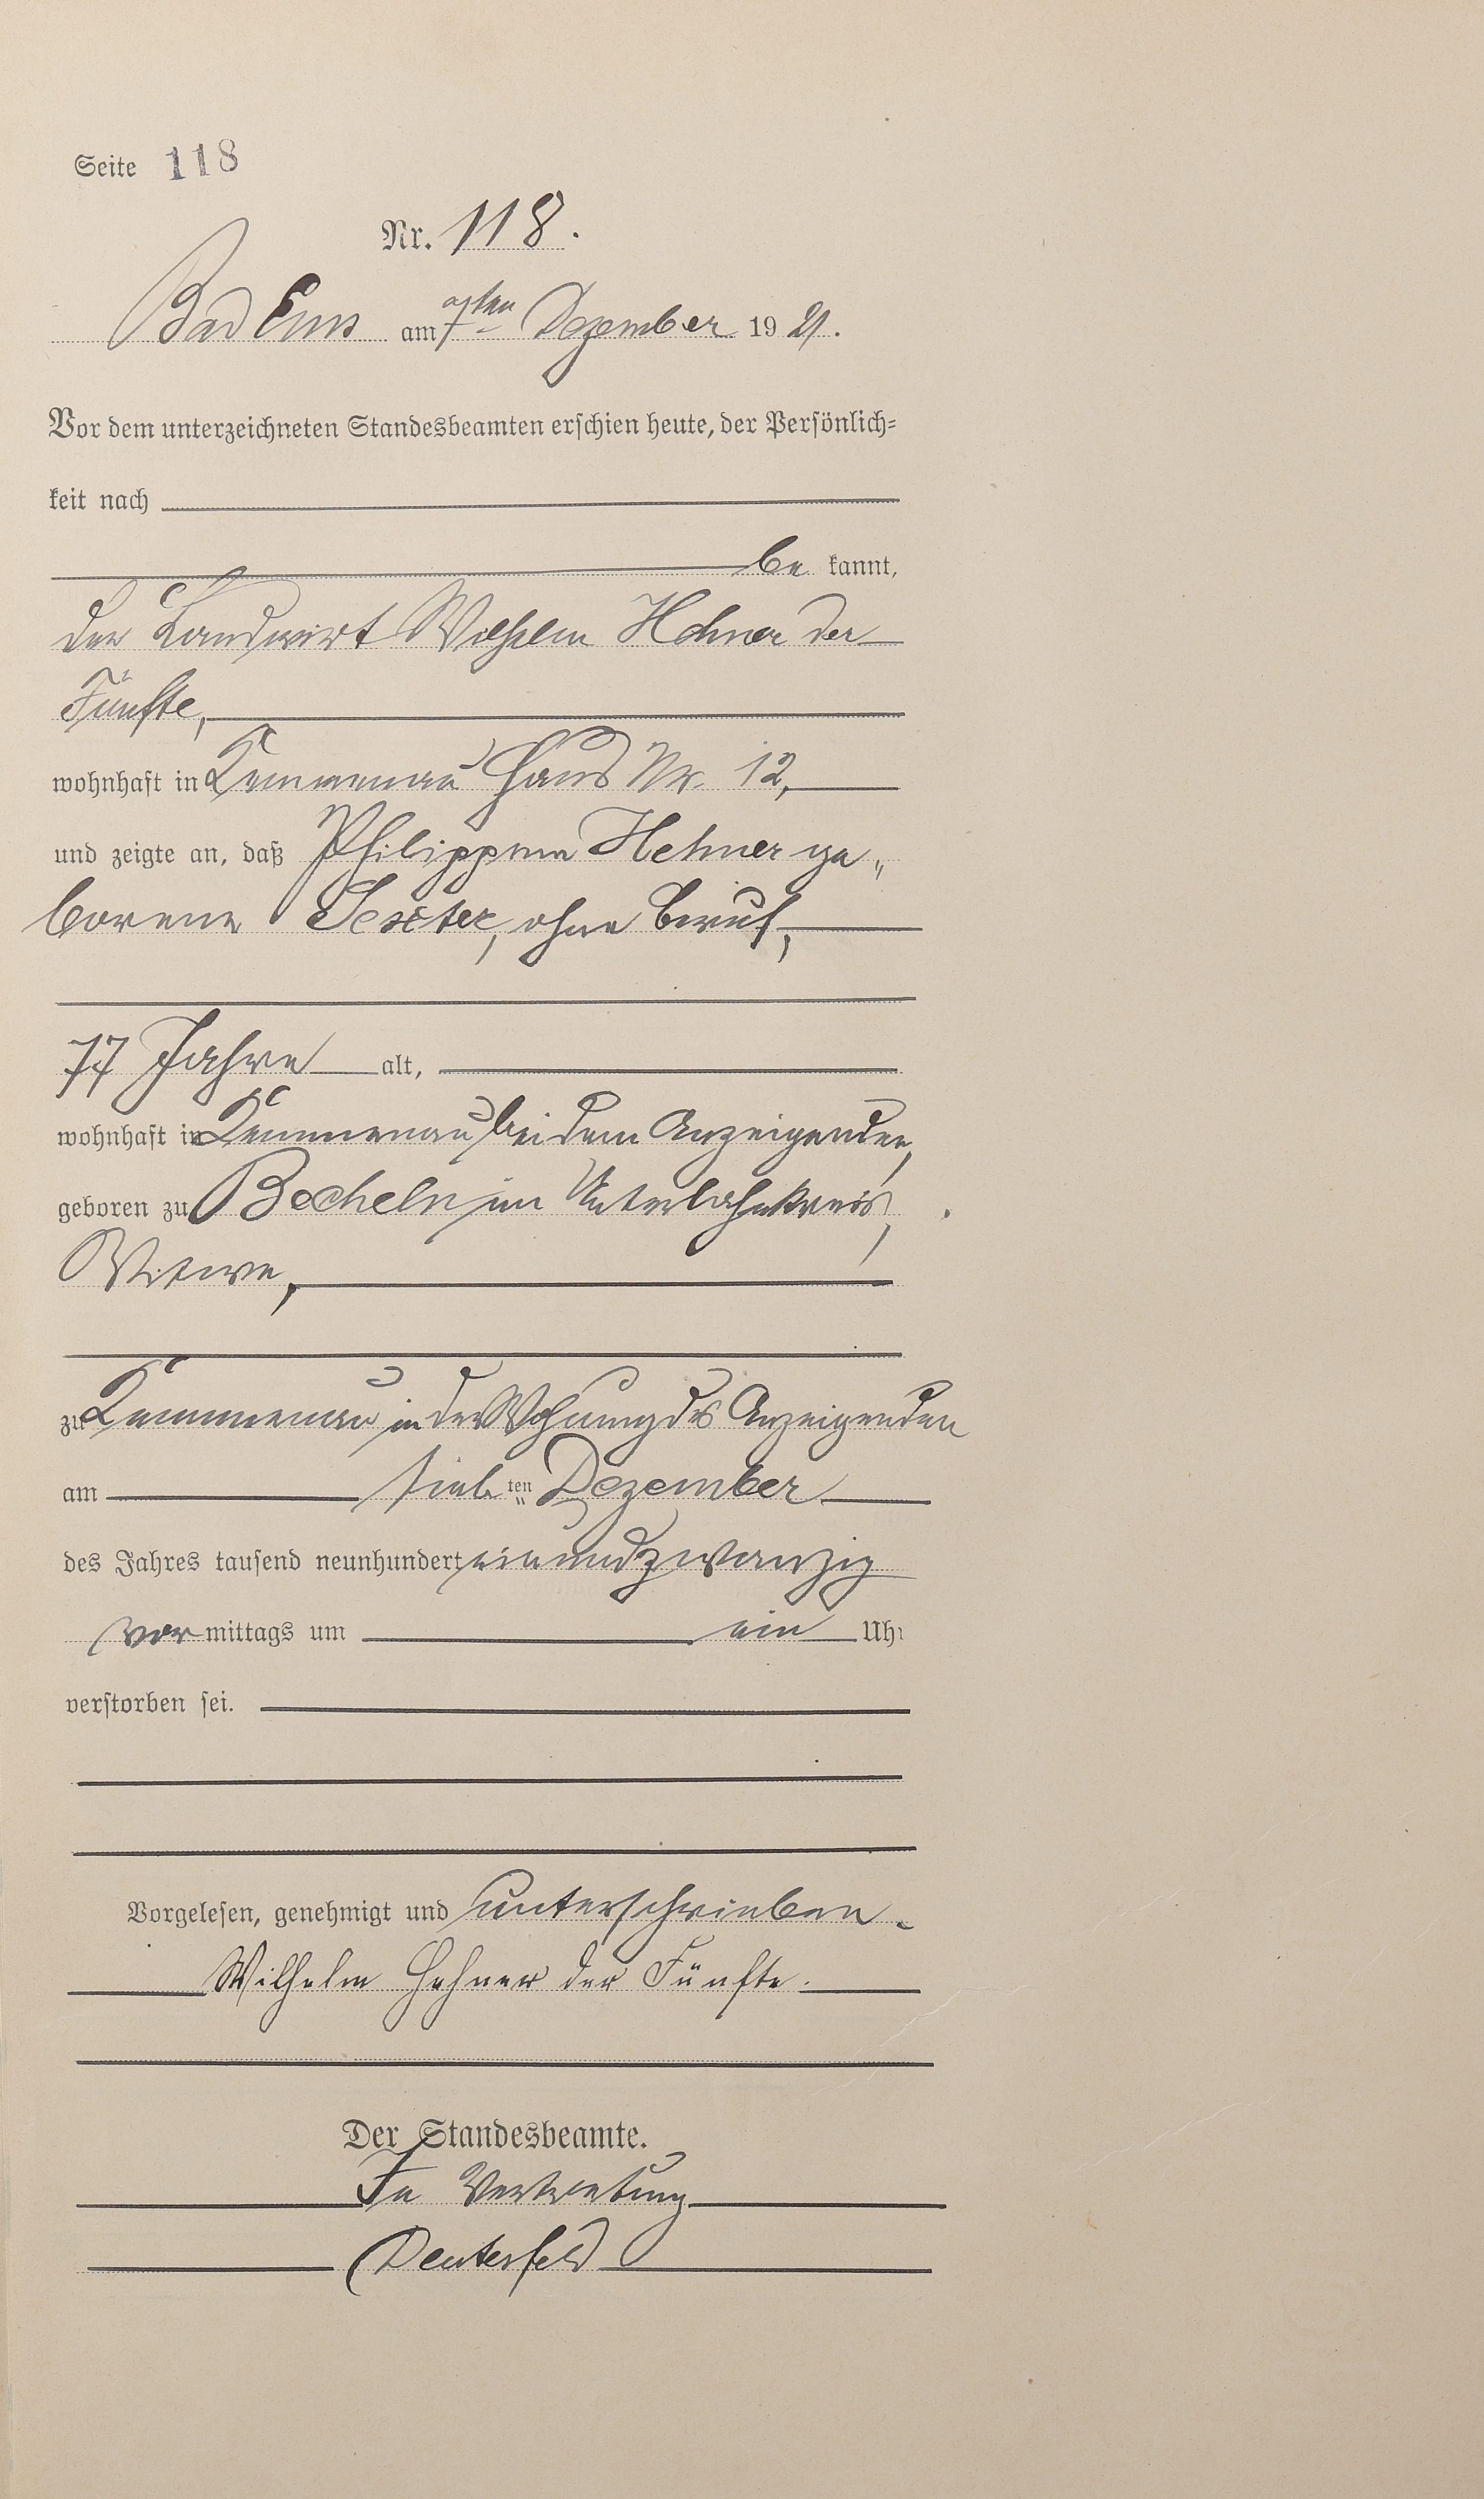 Seite 118
Nr. 118.
Bad Ems am 7ten Dezember 19 21.
Vor dem unterzeichneten Standesbeamten erschien heute, der Persönlich=
keit nach
be kannt,
der Landwirt Wilhelm Hehner der
Fünfte,
wohnhaft in Kemmenau Haus Nr. 12,
und zeigte an, daß Philippine Hehner ge„
borene Sexter, ohne Beruf,
77 Jahre alt,
wohnhaft in Kemmenau bei dem Anzeigenden,
geboren zu Becheln im Unterlahnkreis,
Witwe,
zu Kemmenau in der Wohnung des Anzeigenden
am sieb„ten Dezember
des Jahres tausend neunhundert einundzwanzig
vor mittags um ein Uhr
verstorben sei.
Vorgelesen, genehmigt und unterschrieben.
Wilhelm Hehner der Fünfte.
Der Standesbeamte.
In Vertretung